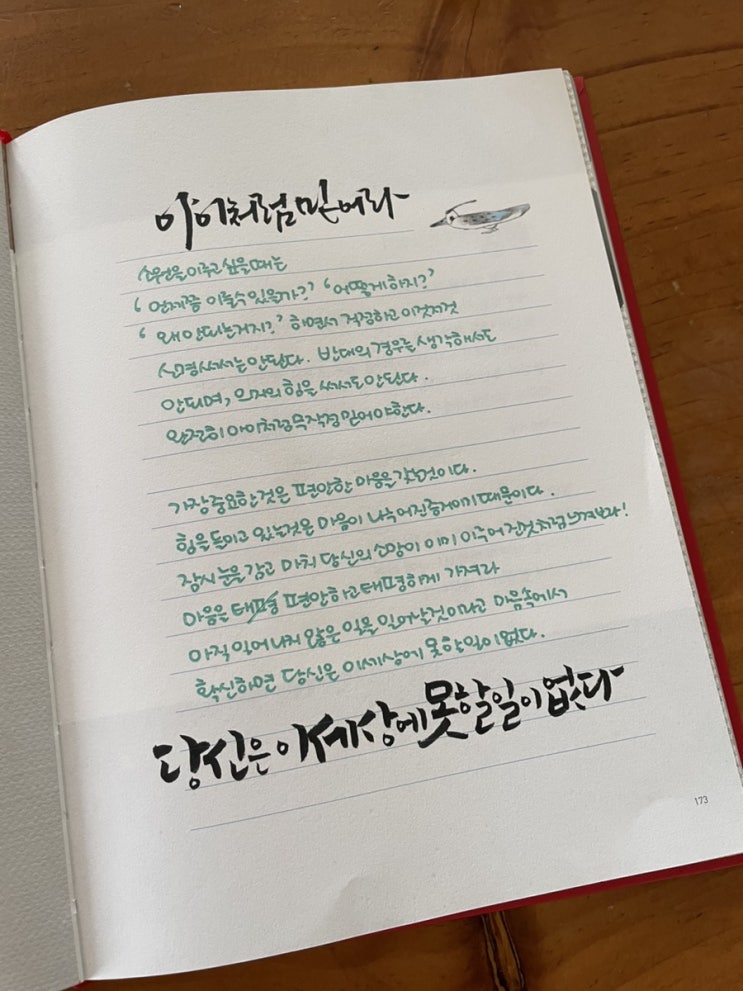 아이처럼 믿어라
소원을 이루고 싶을때는
‘언제쯤 이룰수 있을까?’ ‘어떻게 하지?’
‘왜 안되는거지?’ 하면서 걱정하고 이것저것
신경써서는 안된다. 반대의 경우를 생각해서도
안되며, 의지의 힘을 써서도 안된다.
완전히 아이처럼 무작정 믿어야한다.
가장 중요한것은 편안한 마음을 갖는것이다.
힘을 들이고 있는것은 마음이 나누어진 증거이기 때문이다.
잠시 눈을 감고 마치 당신의 소망이 이미 이루어진것처럼 느껴보라!
마음을 편안하고 태평하게 가져라
아직 일어나지 않은 일을 일어날것이라고 마음속에서
확신하면 당신은 이세상에 못할일이 없다.
당신은 이 세상에 못할 일이 없다
173